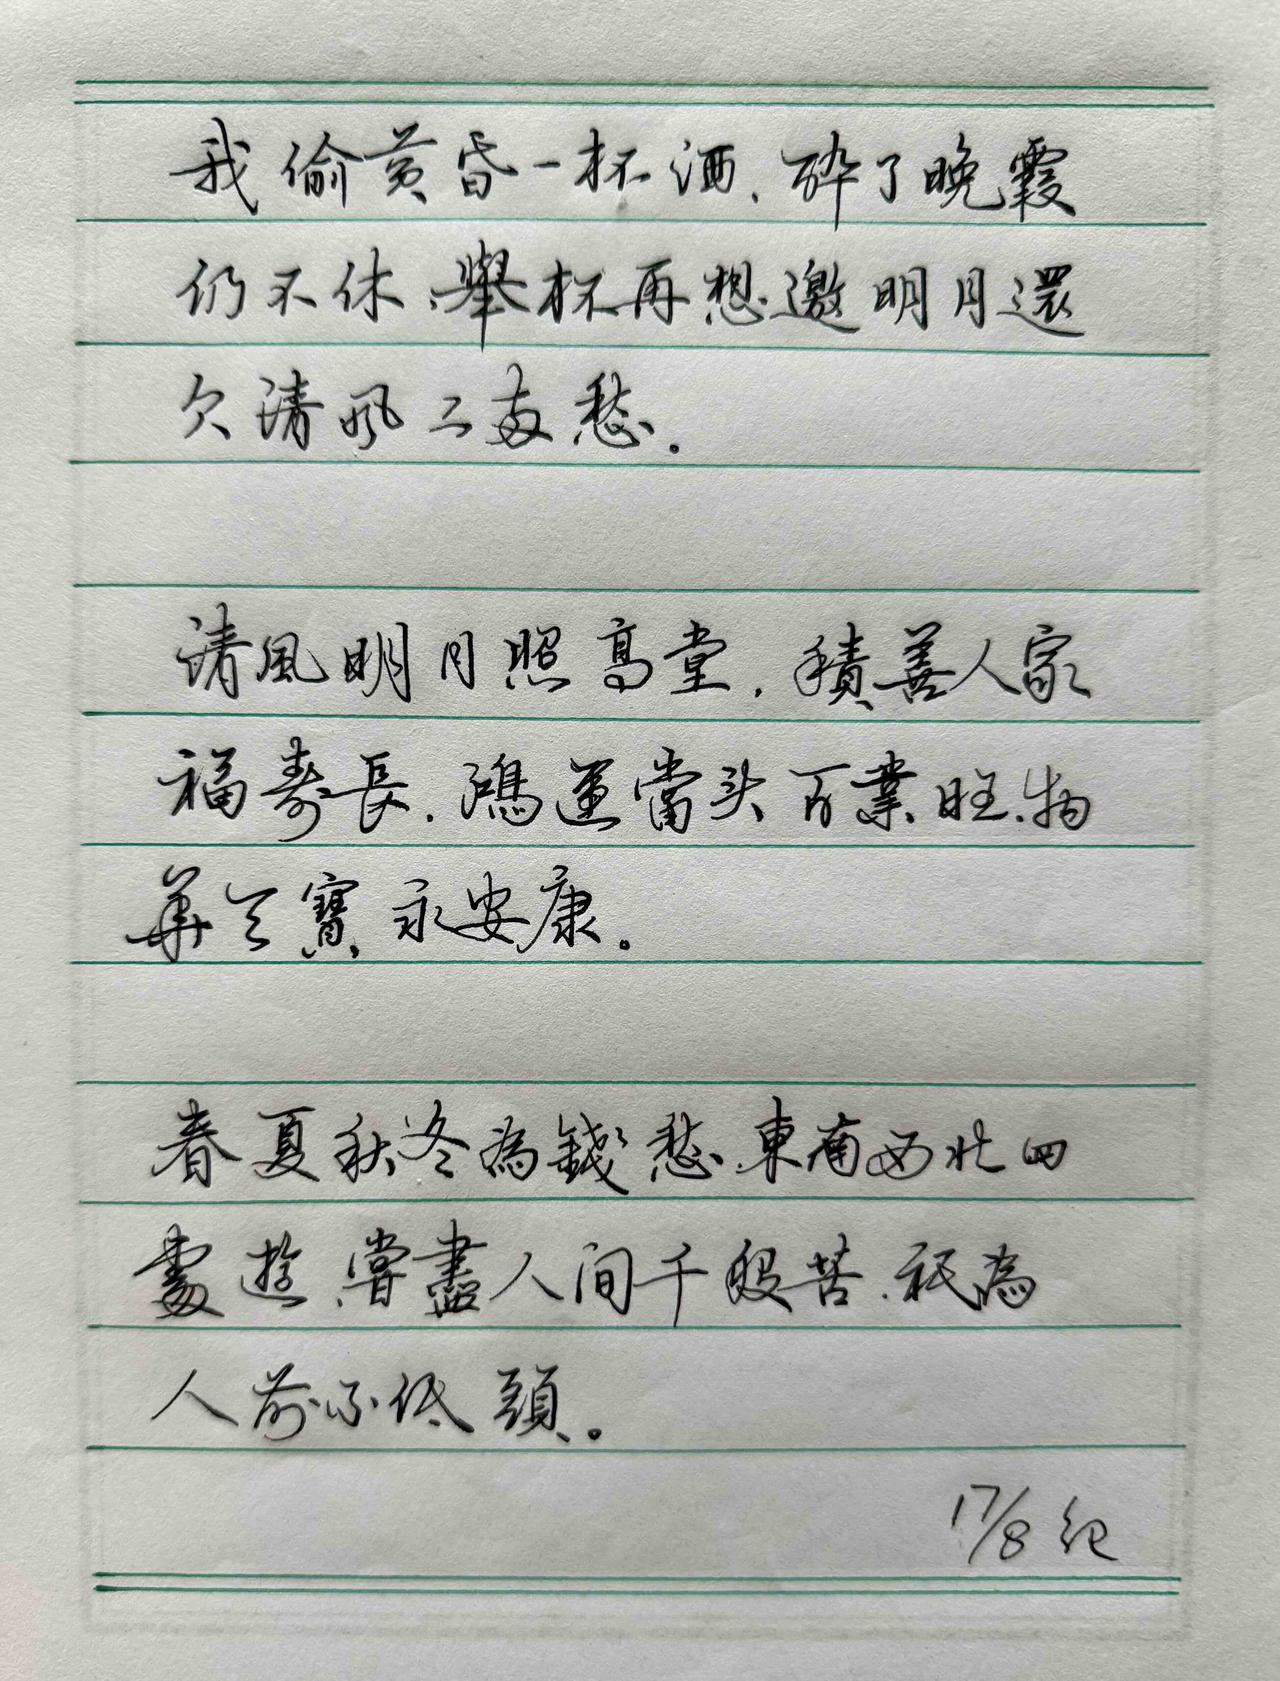 我偷黄昏一杯酒、醉了晚霞
仍不休、舉杯再想邀明月還
欠清風二両愁。
清風明月照高堂，積善人家
福壽長，鴻運當头百業旺、物
華天寶永安康。
春夏秋冬為錢愁、東南西北四
處遊、嘗盡人间千般苦、衹為
人前不低頭。
17/8 纪